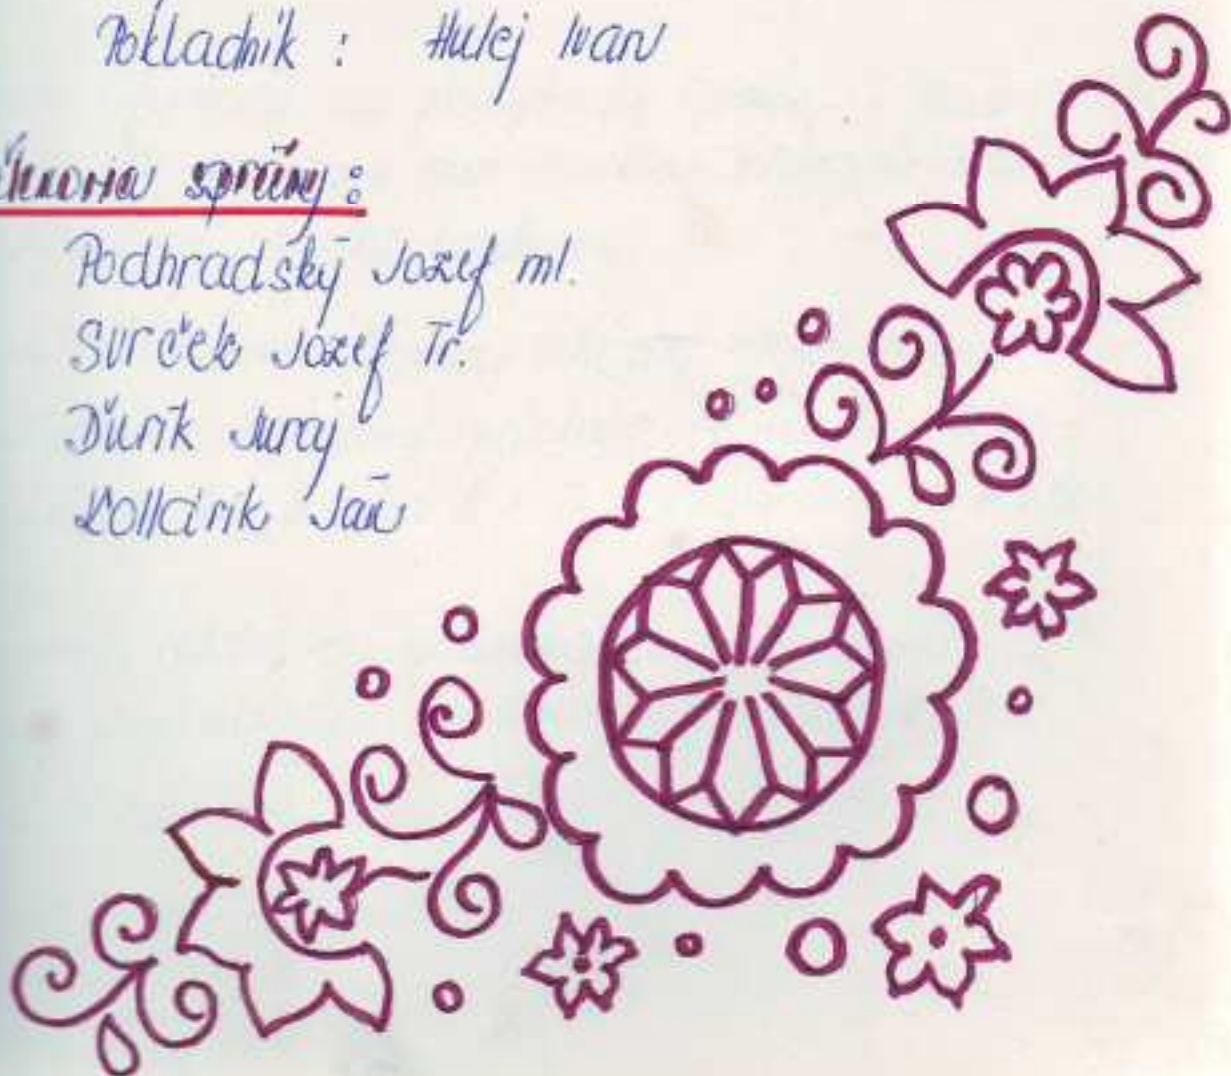 Pokladník : Hulej Ivan
správy :
Podhradský Jozef ml.
Surček Jozef Tr.
Ďurík Juraj
Kollárik Ján